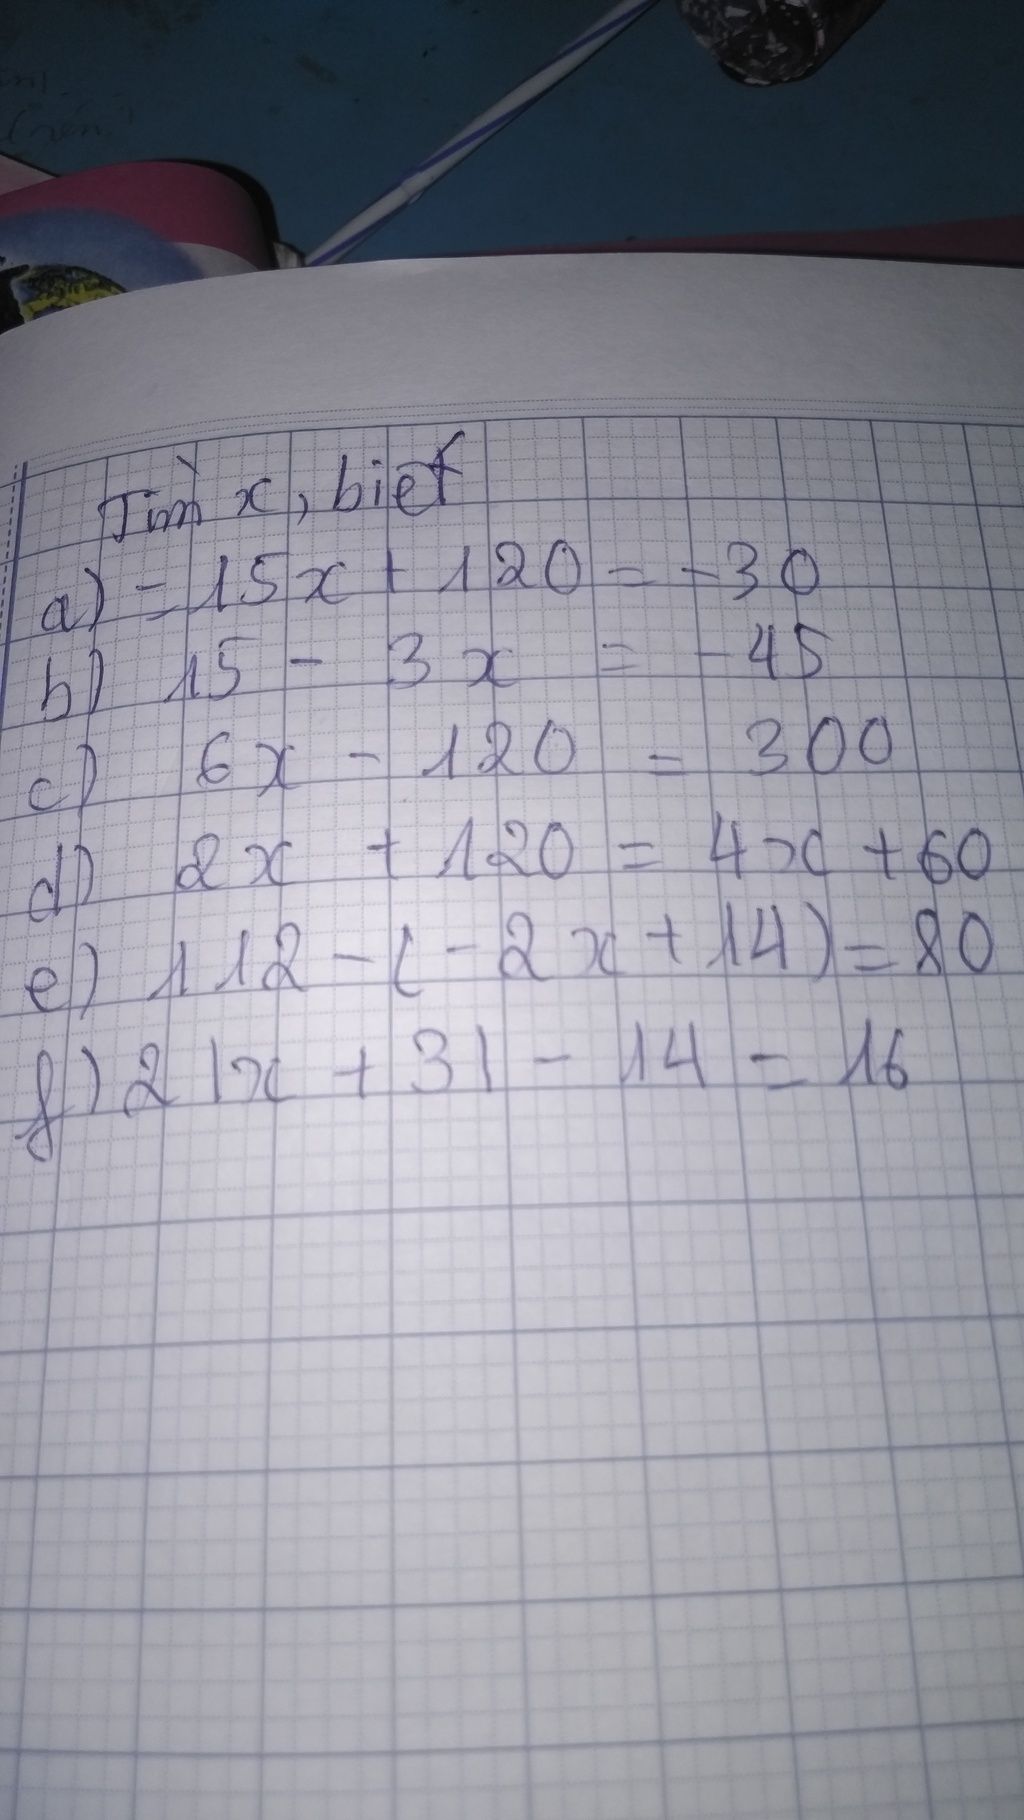 Tìm x, biết
a) -15x + 120 = -30
b) 15 - 3x = -45
c) 6x - 120 = 300
d) 2x + 120 = 4x + 60
e) 112 - (-2x + 14) = 80
f) 2|x + 3| - 14 = 16